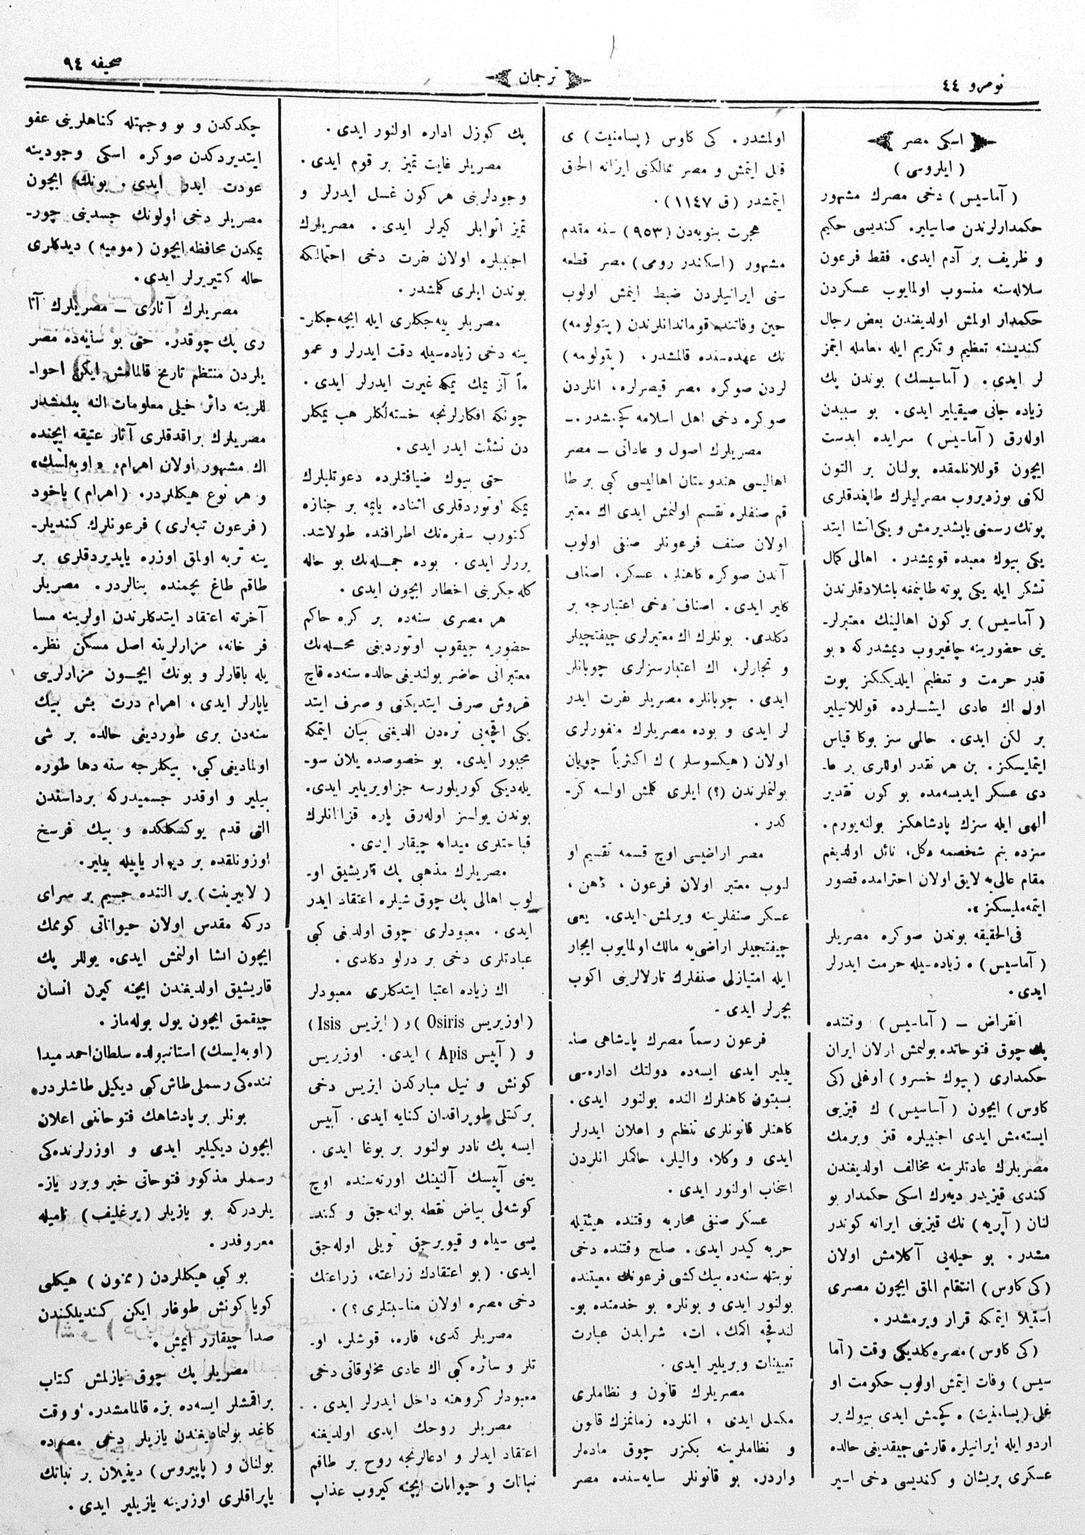 نومرو ٤٤
ترجمان
صحیفه ٩٤
اسکی مصر
( ایلروسی )
( آماسیس ) دخی مصرك مشهور
حکمدارلرندن صاییلیر. کندیسی حکیم
و ظریف بر آدم ایدی. فقط فرعون
سلاله‌سنه منسوب اولمایوب عسکردن
حکمدار اولمش اولدیغندن بعض رجال
کندیسنه تعظیم و تکریم ایله معامله ایتمز
لر ایدی. ( آماسیسك ) بوندن پك
زیاده جانی صیقیلیر ایدی. بو سببدن
اوله‌رق ( آماسیس ) سرایده ابدست
ایچون قوللانلمقده بولنان بر التون
لکنی بوزدیروب مصرلیلرك طاپدقلری
پوتك رسمنی یاپشدیرمش و یکی انشا ایتد
یکی بیوك معبده قویمشدر. اهالی کمال
تشکر ایله یکی پوته طاپنمغه باشلادقلرندن
( آماسیس ) بر کون اهالینك معتبرلر-
ینی حضورینه چاغیروب دیمشدرکه « بو
قدر حرمت و تعظیم ایلدیکیکز پوت
اول اك عادی ایشلرده قوللانیلیر
بر لکن ایدی. حالمی سز بوکا قیاس
ایتملیسکز. بن هر نقدر اوللری بر عا-
دی عسکر ایدیسه‌مده بو کون تقدیر
الهی ایله سزك پادشاهکز بولنه‌یورم.
سزده بنم شخصمه دکل، نائل اولدیغم
مقام عالی‌یه لایق اولان احترامده قصور
ایتمه‌ملیسکز ».
فی‌الحقیقه بوندن صوکره مصریلر
( آماسیس ) ه زیاده‌سیله حرمت ایدرلر
ایدی.
انقراض — ( آماسیس ) وقتنده
پك چوق فتوحاتده بولنمش اولان ایران
حکمداری ( بیوك خسرو ) اوغلی ( کی
کاوس ) ایچون ( آماسیس ) ك قیزینی
ایسته‌مش ایدی اجنبیلره قیز ویرمك
مصریلرك عادتلرینه مخالف اولدیغندن
کندی قیزیدر دیه‌رك اسکی حکمدار بو
لنان ( آپریه ) نك قیزینی ایرانه کوندر
مشدر. بو حیله‌یی آکلامش اولان
( کی کاوس ) انتقام المق ایچون مصری
استیلا ایتمکه قرار ویرمشدر.
( کی کاوس ) مصره کلدیکی وقت ( آما
سیس ) وفات ایتمش اولوب حکومت او
غلی ( پسامنیت ) ه کچمش ایدی بیوك بر
اردو ایله ایرانیلره قارشی چیقدیغی حالده
عسکری پریشان و کندیسی دخی اسیر
اولمشدر. کی کاوس ( پسامنیت ) ی
قتل ایتمش و مصر ممالکنی ایرانه الحاق
ایتمشدر ( ق ١١٤٧ ).
هجرت بنویه‌دن ( ٩٥٣ ) سنه مقدم
مشهور ( اسکندر رومی ) مصر قطعه
سنی ایرانیلردن ضبط ایتمش اولوب
حین وفاتنده قوماندانلرندن ( پتولومه )
نك عهده‌سنده قالمشدر. ( پتولومه )
لردن صوکره مصر قیصرلره، انلردن
صوکره دخی اهل اسلامه کچمشدر. —
مصریلرك اصول و عاداتی — مصر
اهالیسی هندوستان اهالیسی کبی بر طا
قم صنفلره تقسیم اولنمش ایدی اك معتبر
اولان صنف فرعونلر صنفی اولوب
آندن صوکره کاهنلر، عسکر، اصناف
کلیر ایدی. اصناف دخی اعتبارجه بر
دکلدی. بونلرك اك معتبرلری چیفتجیلر
و تجارلر، اك اعتبارسزلری چوبانلر
ایدی. چوبانلره مصریلر نفرت ایدر
لر ایدی و بوده مصریلرك منفورلری
اولان ( هیکسوسلر ) ك اکثریاً چوپان
بولنملرندن (؟) ایلری کلمش اولسه کر-
کدر.
مصر اراضیسی اوچ قسمه تقسیم او
لنوب معتبر اولان فرعون، کاهن،
عسکر صنفلرینه ویرلمش ایدی. یعنی
چیفتجیلر اراضی‌یه مالك اولمایوب ایجار
ایله امتیازلی صنفلرك تارلالرینی اکوب
بچرلر ایدی.
فرعون رسماً مصرك پادشاهی صا-
ییلیر ایدی ایسه‌ده دولتك اداره‌سی
بسبتون کاهنلرك النده بولنور ایدی.
کاهنلر قانونلری تنظیم و اعلان ایدرلر
ایدی و وکلا، والیلر، حاکملر انلردن
انتخاب اولنور ایدی.
عسکر صنفی محاربه وقتنده هیئتیله
حربه کیدر ایدی. صلح وقتنده دخی
نوبتله سنه‌ده بیك کشی فرعونك معیتنده
بولنور ایدی و بونلره بو خدمتده بو-
لندقچه اکمك، ات، شرابدن عبارت
تعیینات ویریلیر ایدی.
مصریلرك قانون و نظاملری
مکمل ایدی و انلرده زمانمزك قانون
و نظاملرینه بکزر چوق ماده‌لر
واردر. بو قانونلر سایه‌سنده مصر
پك کوزل اداره اولنور ایدی.
مصریلر غایت تمیز بر قوم ایدی.
وجودلرینی هر کون غسل ایدرلر و
تمیز اثوابلر کیرلر ایدی. مصریلرك
اجنبیلره اولان نفرت دخی احتمالکه
بوندن ایلری کلمشدر.
مصریلر ییه‌جکلری ایله ایچه‌جکلر-
ینه دخی زیاده‌سیله دقت ایدرلر و عمو
ماً آز ییمك ییمکه غیرت ایدرلر ایدی.
چونکه افکارلرنجه خسته‌لکلر هب ییمکلر
دن نشئت ایدر ایدی.
حتی بیوك ضیافتلرده دعوتلیلرك
ییمکه اوتوردقلری اثناده یاپمه بر جنازه
کتورب سفره‌نك اطرافنده طولاشد-
یررلر ایدی. بوده جمله‌نك بو حاله
کله‌جکرینی اخطار ایچون ایدی.
هر مصری سنه‌ده بر کره حاکم
حضورینه چیقوب اوتوردیغی محله‌نك
معتبرانی حاضر بولندیغی حالده سنه‌ده قاچ
غروش صرف ایتدیکنی و صرف ایتد
یکی اقچه‌یی نره‌دن الدیغنی بیان ایتمکه
مجبور ایدی. بو خصوصده یلان سو-
یله‌دیکی کوریلورسه جزا ویریلیر ایدی.
بوندن یولسز اوله‌رق پاره قزانانلرك
قباحتلری میدانه چیقار ایدی.
مصریلرك مذهبی پك قاریشیق او-
لوب اهالی پك چوق شیلره اعتقاد ایدر
ایدی. معبودلری چوق اولدیغی کبی
عبادتلری دخی بر درلو دکلدی.
اك زیاده اعتبا ایتدکلری معبودلر
( اوزیریس Osiris ) و ( ایزیس Isis )
و ( آپیس Apis ) ایدی. اوزیریس
کونش و نیل مبارکدن ایزیس دخی
برکتلی طوپراقدان کنایه ایدی. آپیس
ایسه پك نادر بولنور بر بوغا ایدی.
یعنی آپیسك آلنینك اورته‌سنده اوچ
کوشه‌لی بیاض نقطه بولنه‌جق و کند-
یسی سیاه و قیویرجق تویلی اوله‌جق
ایدی. ( بو اعتقادك زراعته، زراعتك
دخی مصره اولان مناسبتلری ؟ ).
مصریلر کدی، فاره، قوشلر، او-
تلر و سائره کبی اك عادی مخلوقاتی دخی
معبودلر کروهنه داخل ایدرلر ایدی.
مصریلر روحك ابدی اولدیغنه
اعتقاد ایدلر و ادعالرنجه روح بر طاقم
نباتات و حیوانات ایچنه کیروب عذاب
چکدکدن و بو وجهتله کناهلرینی عفو
ایتدیردکدن صوکره اسکی وجودینه
عودت ایدر ایدی. بونك ایچون
مصریلر دخی اولونك جسدینی چور-
یمکدن محافظه ایچون ( مومیه ) دیدکلری
حاله کتیریرلر ایدی.
مصریلرك آثاری — مصریلرك آثا
ری پك چوقدر. حتی بو سایه‌ده مصر
یلردن منتظم تاریخ قالمامش ایکن احوا-
للرینه دائر خیلی معلومات النه بیلمشدر
مصریلرك براقدقلری آثار عتیقه ایچنده
اك مشهور اولان اهرام، « اوبه‌لیسك »
و هر نوع هیکللردر. ( اهرام ) یاخود
( فرعون تپه‌لری ) فرعونلرك کندیلر-
ینه تربه اولمق اوزره یاپدیردقلری بر
طاقم طاغ بچمنده بنالردر. مصریلر
آخرته اعتقاد ایتدکلرندن اولرینه مسا
فر خانه، مزارلرینه اصل مسکن نظر-
یله باقارلر و بونك ایچون مزارلرینی
یاپارلر ایدی، اهرام درت بش بیك
سنه‌دن بری طوردیغی حالده بر شی
اولمادیغی کبی. بیکلرجه سنه دها طوره
بیلیر و اوقدر جسمیدرکه برداسندن
التی قدم یوکسکلکده و بیك فرسخ
اوزونلقده بر دیوار یاپیله بیلیر.
( لابیرینت ) یر التنده جسیم بر سرای
درکه مقدس اولان حیواناتی کوممك
ایچون انشا اولنمش ایدی. یوللر پك
قاریشیق اولدیغندن ایچنه کیرن انسان
چیقمق ایچون یول بوله‌ماز.
( اوبه‌لیسك ) استانبولده سلطان احمد میدا
ننده‌کی رسملی طاش کبی دیکیلی طاشلردر.
بونلر بر پادشاهك فتوحاتنی اعلان
ایچون دیکیلیر ایدی و اوزرلرنده‌کی
رسملر مذکور فتوحاتی خبر ویرر یاز-
یلردرکه بو یازیلر ( یرغلیف ) نامیله
معروفدر.
بو کبی هیکللردن ( ممنون ) هیکلی
کویا کونش طوغار ایکن کندیلکندن
صدا چیقارر ایمش.
مصریلر پك چوق یازلمش کتاب
براقمشلر ایسه‌ده بزه قالمامشدر. او وقت
کاغد بولنمادیغندن یازیلر دخی مصرده
بولنان و ( پاپیروس ) دینیلان بر نباتك
یاپراقلری اوزرینه یازیلیر ایدی.